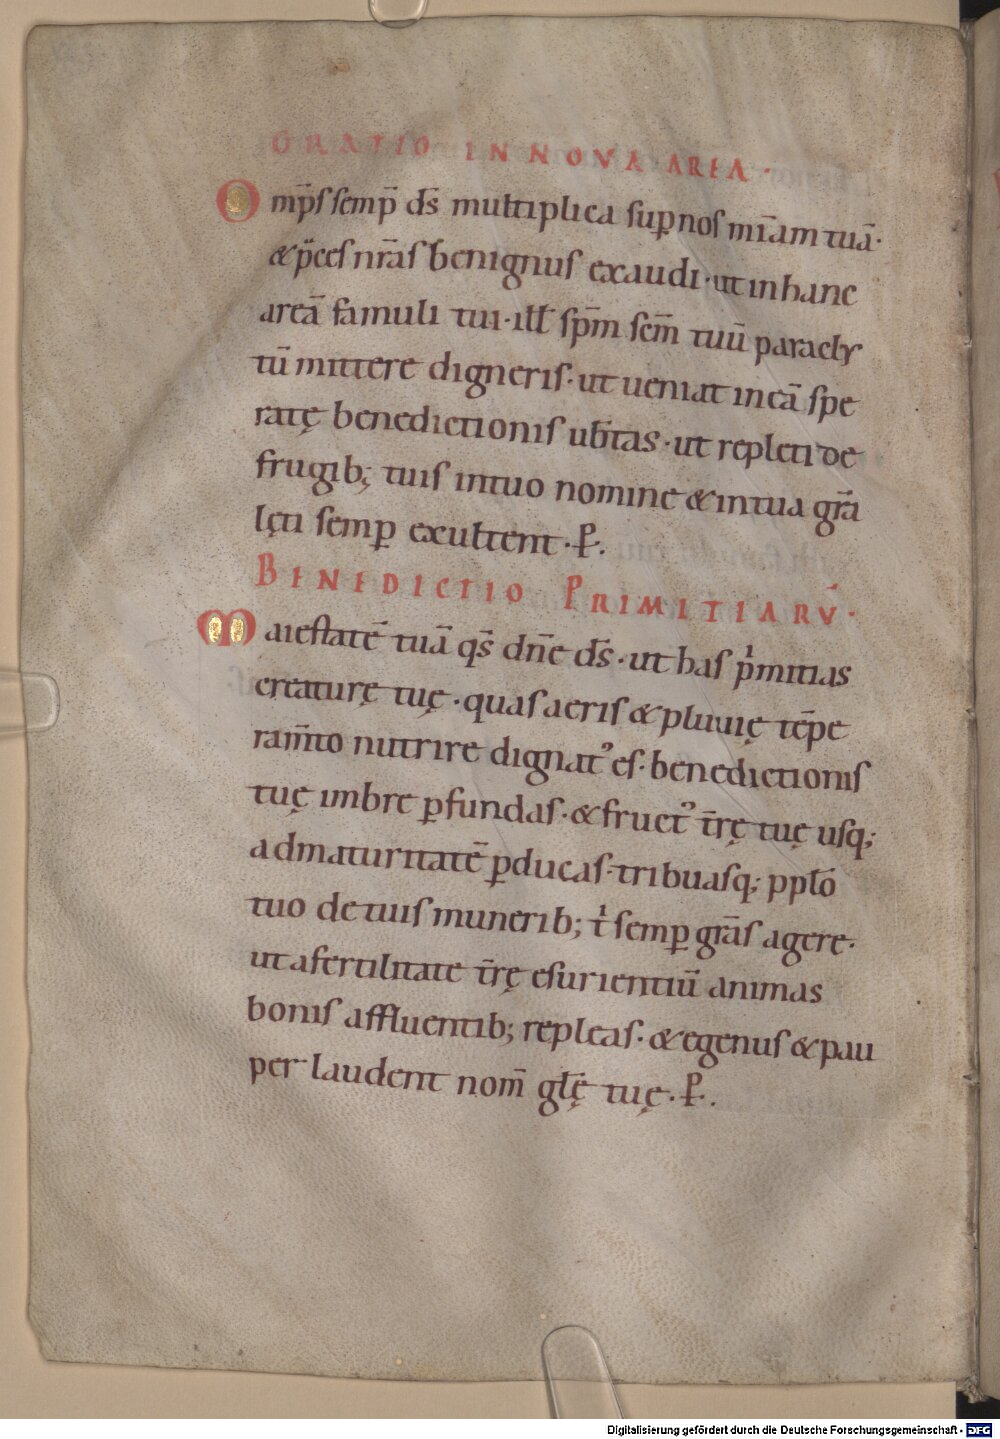 ORATIO IN NOVA AREA·
Omp̄s semp̄ d̄s multiplica sup nos mīam tuā·
& p̄ces nr̄as benignus exaudi· ut in hanc
areā famuli tui· ill̄ sp̄m sc̄m tuū paracly
tū mittere digneris· ut ueniat in eā spe
ratę benedictionis ub̄tas· ut repleti de
frugib; tuis in tuo nomine & in tua gr̄a
lęti semꝑ exultent· P̄.
BENEDICTIO PRIMITIARŪ·
Maiestatē tuā qs̄ dn̄e d̄s· ut has pͥmitias
creaturę tuę· quas aeris & pluuię tēpe
ram̄to nutrire dignat᾽ es· benedictionis
tuę imbre ꝑfundas· & fruct᾽ t̄rę tuę usq;
ad maturitatē ꝑducas· tribuasq; pplō
tuo de tuis munerib; tͥ semꝑ grās agere·
ut a fertilitate t̄rę esurientiū animas
bonis affluentib; repleas· & egenus & pau
per laudent nom̄ gl̄ę tuę· P̄.
Digitalisierung gefördert durch die Deutsche Forschungsgemeinschaft - DFG